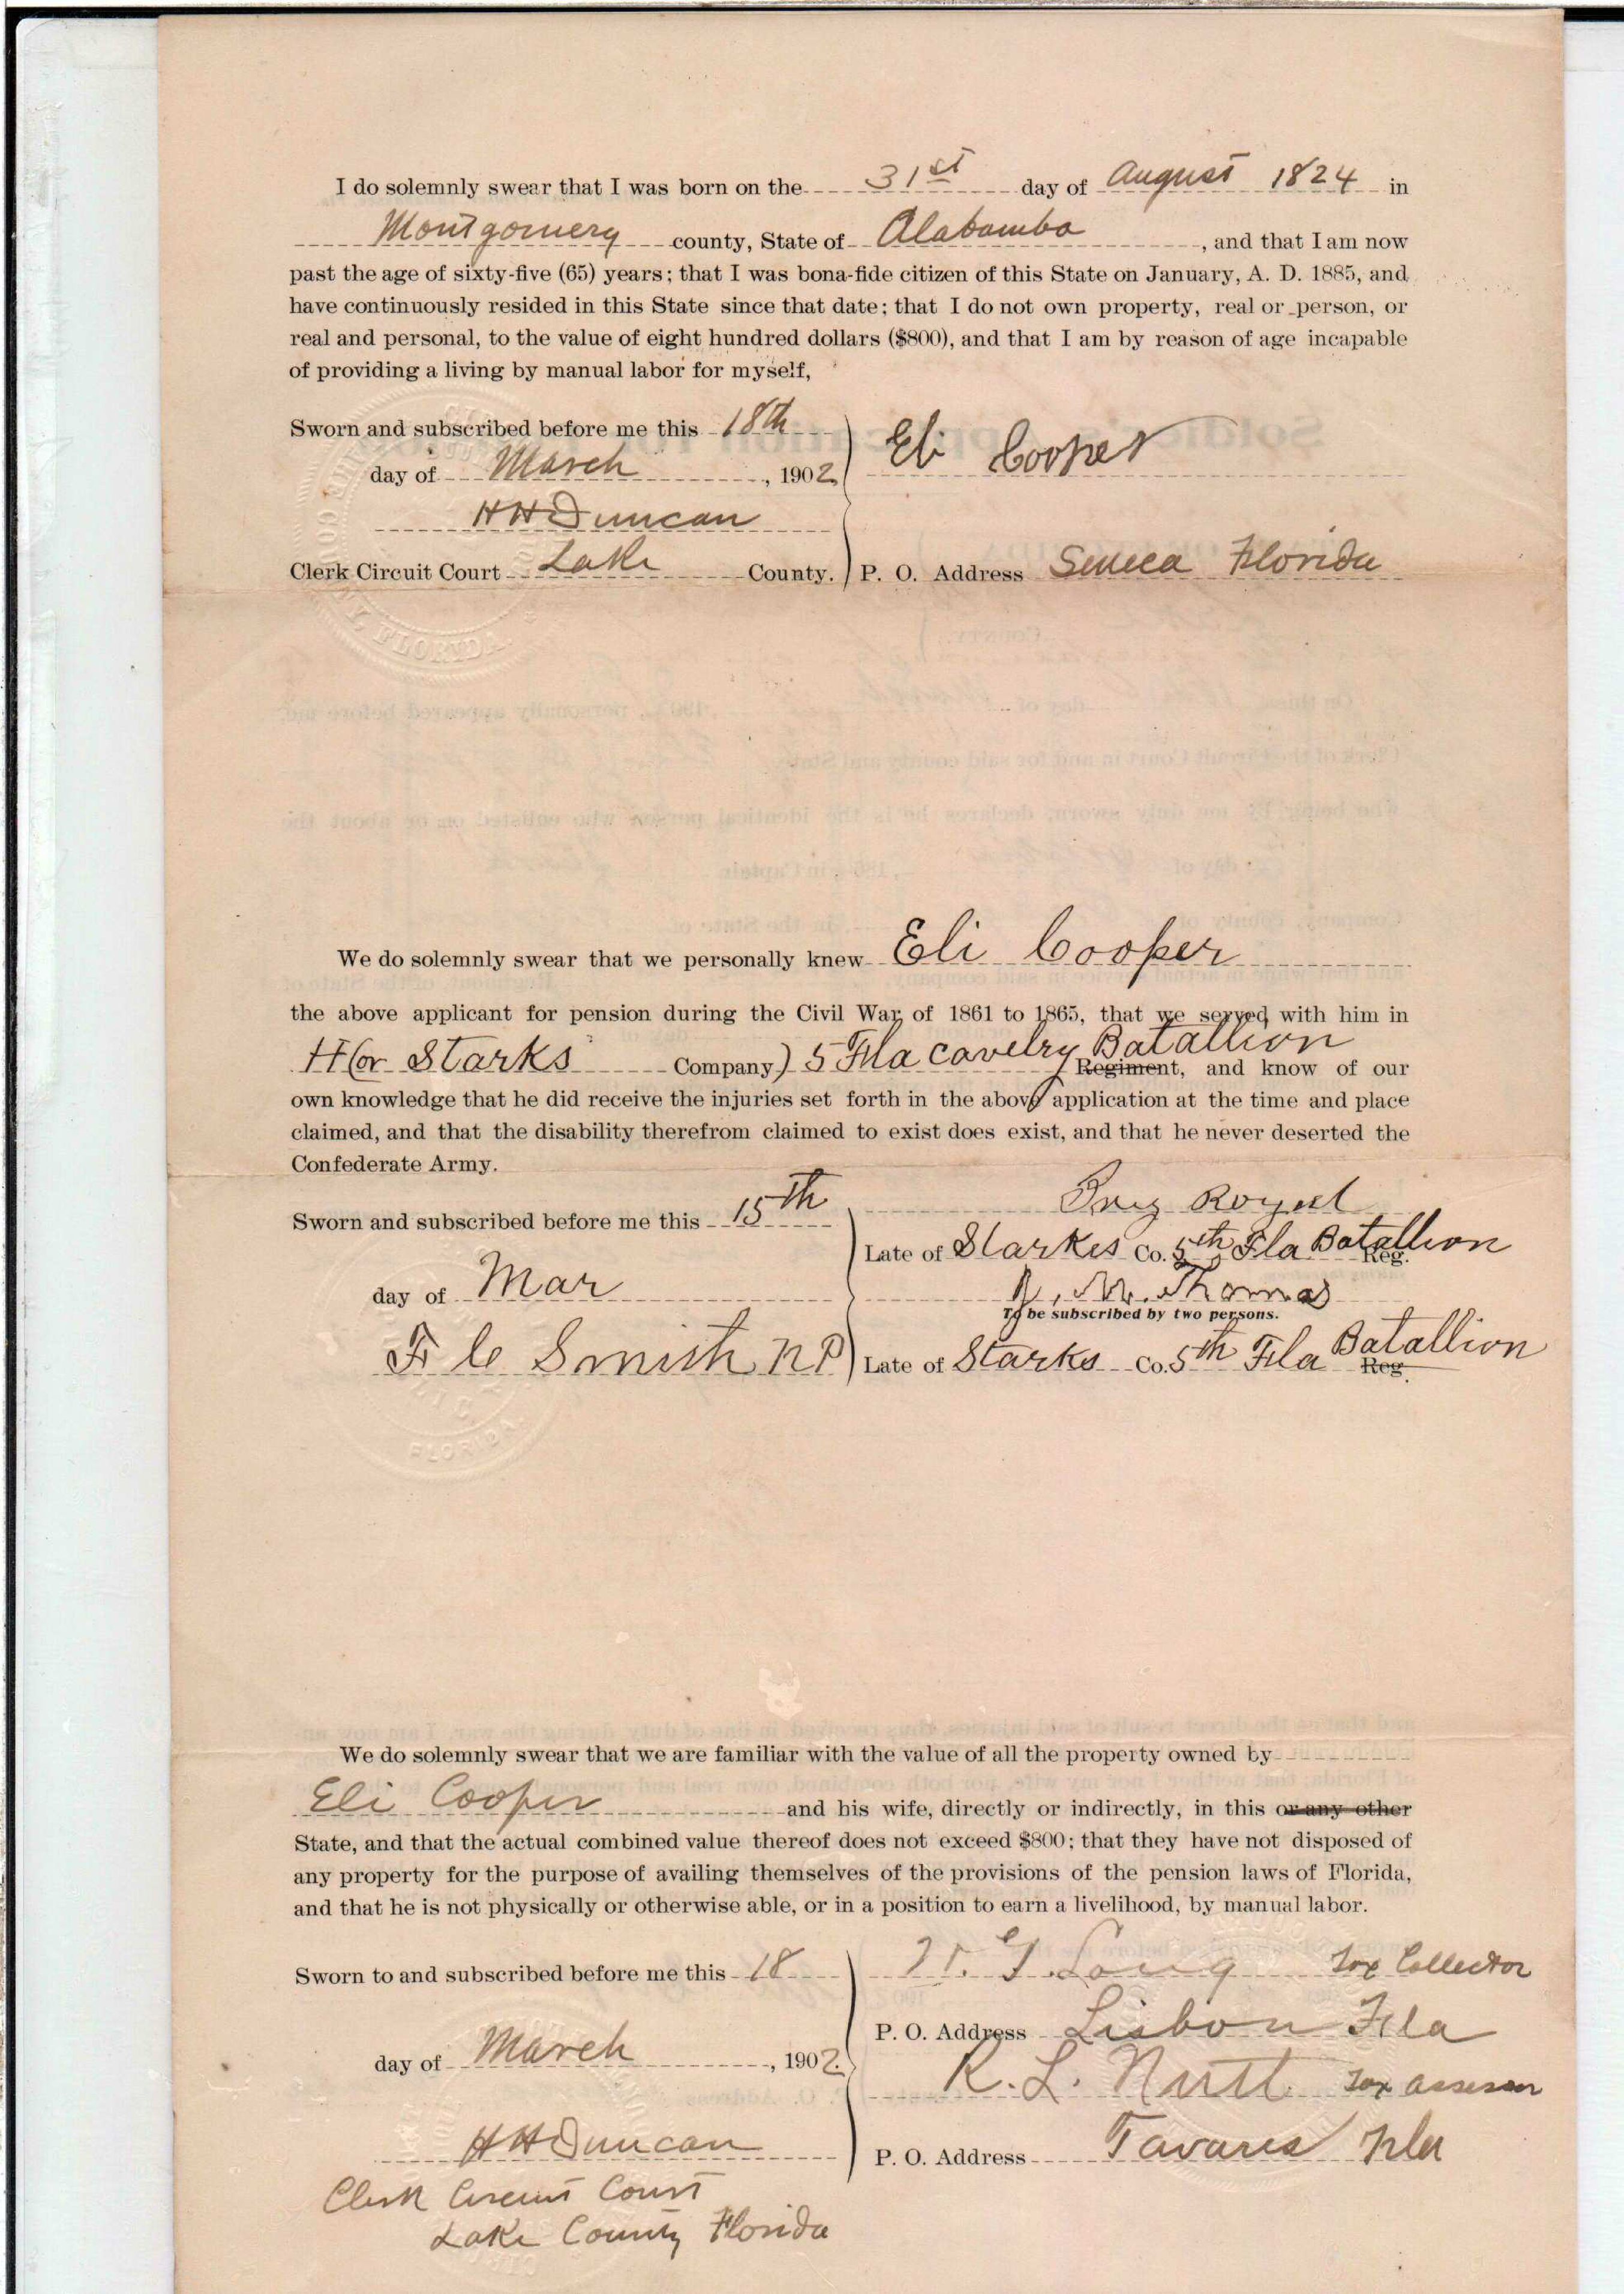 I do solemnly swear that I was born on the 31st day of August 1824 in
Montgomery county, State of Alabamba, and that I am now
past the age of sixty-five (65) years; that I was bona-fide citizen of this State on January, A. D. 1885, and
have continuously resided in this State since that date; that I do not own property, real or person, or
real and personal, to the value of eight hundred dollars ($800), and that I am by reason of age incapable
of providing a living by manual labor for myself,
Sworn and subscribed before me this 18th
day of March, 1902
Eli Cooper
HH Duncan
Clerk Circuit Court Lake County. P. O. Address Seneca Florida
FLORIDA
We do solemnly swear that we personally knew Eli Cooper
the above applicant for pension during the Civil War of 1861 to 1865, that we served with him in
H (or Starks Company) 5 Fla Cavelry Batallion Regiment, and know of our
own knowledge that he did receive the injuries set forth in the above application at the time and place
claimed, and that the disability therefrom claimed to exist does exist, and that he never deserted the
Confederate Army.
Sworn and subscribed before me this 15th
Royal
Late of Starkes Co. 5th Fla Batallion Reg.
day of Mar
M. Thomas
To be subscribed by two persons.
F C Smith NP
Late of Starks Co. 5th Fla Batallion Reg.
FLORIDA
We do solemnly swear that we are familiar with the value of all the property owned by
Eli Cooper and his wife, directly or indirectly, in this or any other
State, and that the actual combined value thereof does not exceed $800; that they have not disposed of
any property for the purpose of availing themselves of the provisions of the pension laws of Florida,
and that he is not physically or otherwise able, or in a position to earn a livelihood, by manual labor.
Sworn to and subscribed before me this 18
Long Tax Collector
P. O. Address Lisbon Fla
day of March, 1902.
R. L. Nutt Tax assessor
HH Duncan
P. O. Address Tavares Fla
Clerk Circuit Court
Lake County Florida